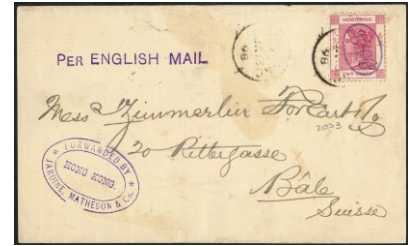 PER ENGLISH MAIL
98
98
TWO CENTS
Mess Zimmerlin Forcart & Co
2023
20 Rittergasse
Bâle
Suisse
* FORWARDED BY *
HONG KONG.
JARDINE, MATHESON & Co.